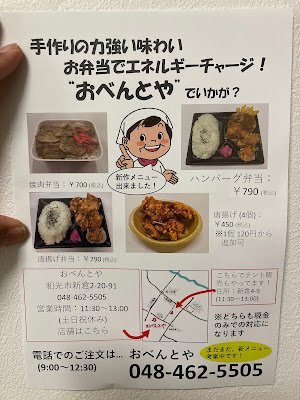 手作りの力強い味わい
お弁当でエネルギーチャージ!
“おべんとや”でいかが?
新作メニュー
出来ました!
焼肉弁当:￥700(税込)
ハンバーグ弁当:
￥790(税込)
唐揚げ弁当:￥790(税込)
唐揚げ(4個):
￥450(税込)
※1個 120円から
追加可
おべんとや
和光市新倉2-20-91
048-462-5505
営業時間:11:30~13:00
(土日祝休み)
店舗はこちら
こちらでテント販
売もやってます!
住所:新倉4-9
(11:30~13:00)
※どちらも現金
のみでの対応に
なります
まだまだ、新メニュー
考案中です!
電話でのご注文は… おべんとや
(9:00~12:30)
048-462-5505